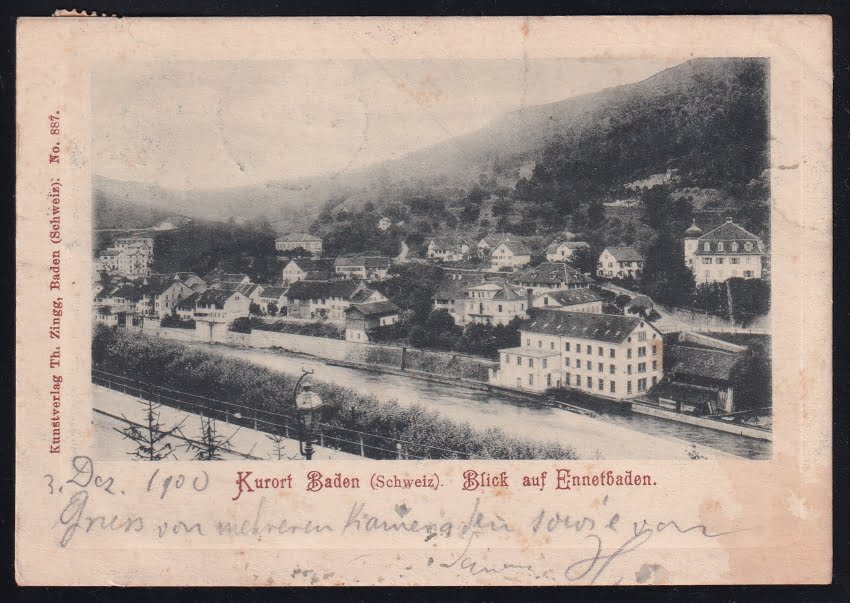 Kunstverlag Th. Zingg, Baden (Schweiz): No. 887.
Kurort Baden (Schweiz). Blick auf Ennetbaden.
3. Dez. 1900
Gruss von mehreren sowie von